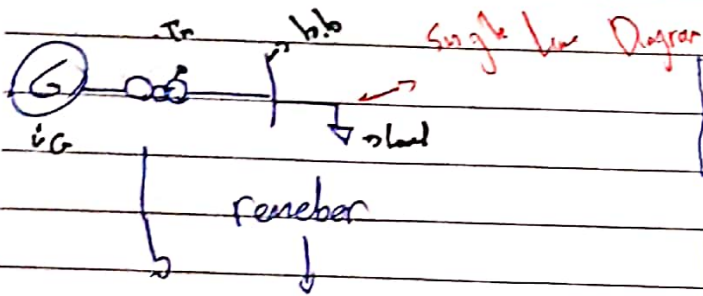 Tr b.b Single line Diagram
G
iG → load
remeber